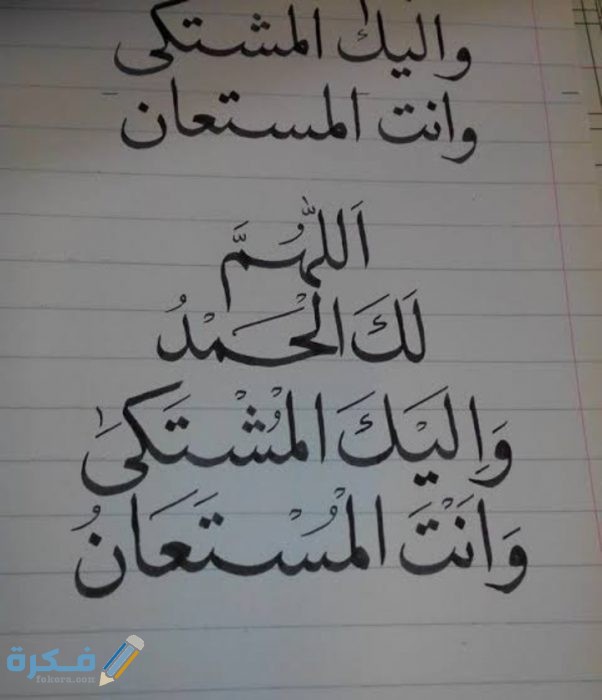 واليك المشتكى
وانت المستعان
اَللّٰهُمَّ
لَكَ الْحَمْدُ
وَاِلَيْكَ الْمُشْتَكٰىَ
وَاَنْتَ الْمُسْتَعَانُ
فكرة
fekera.com